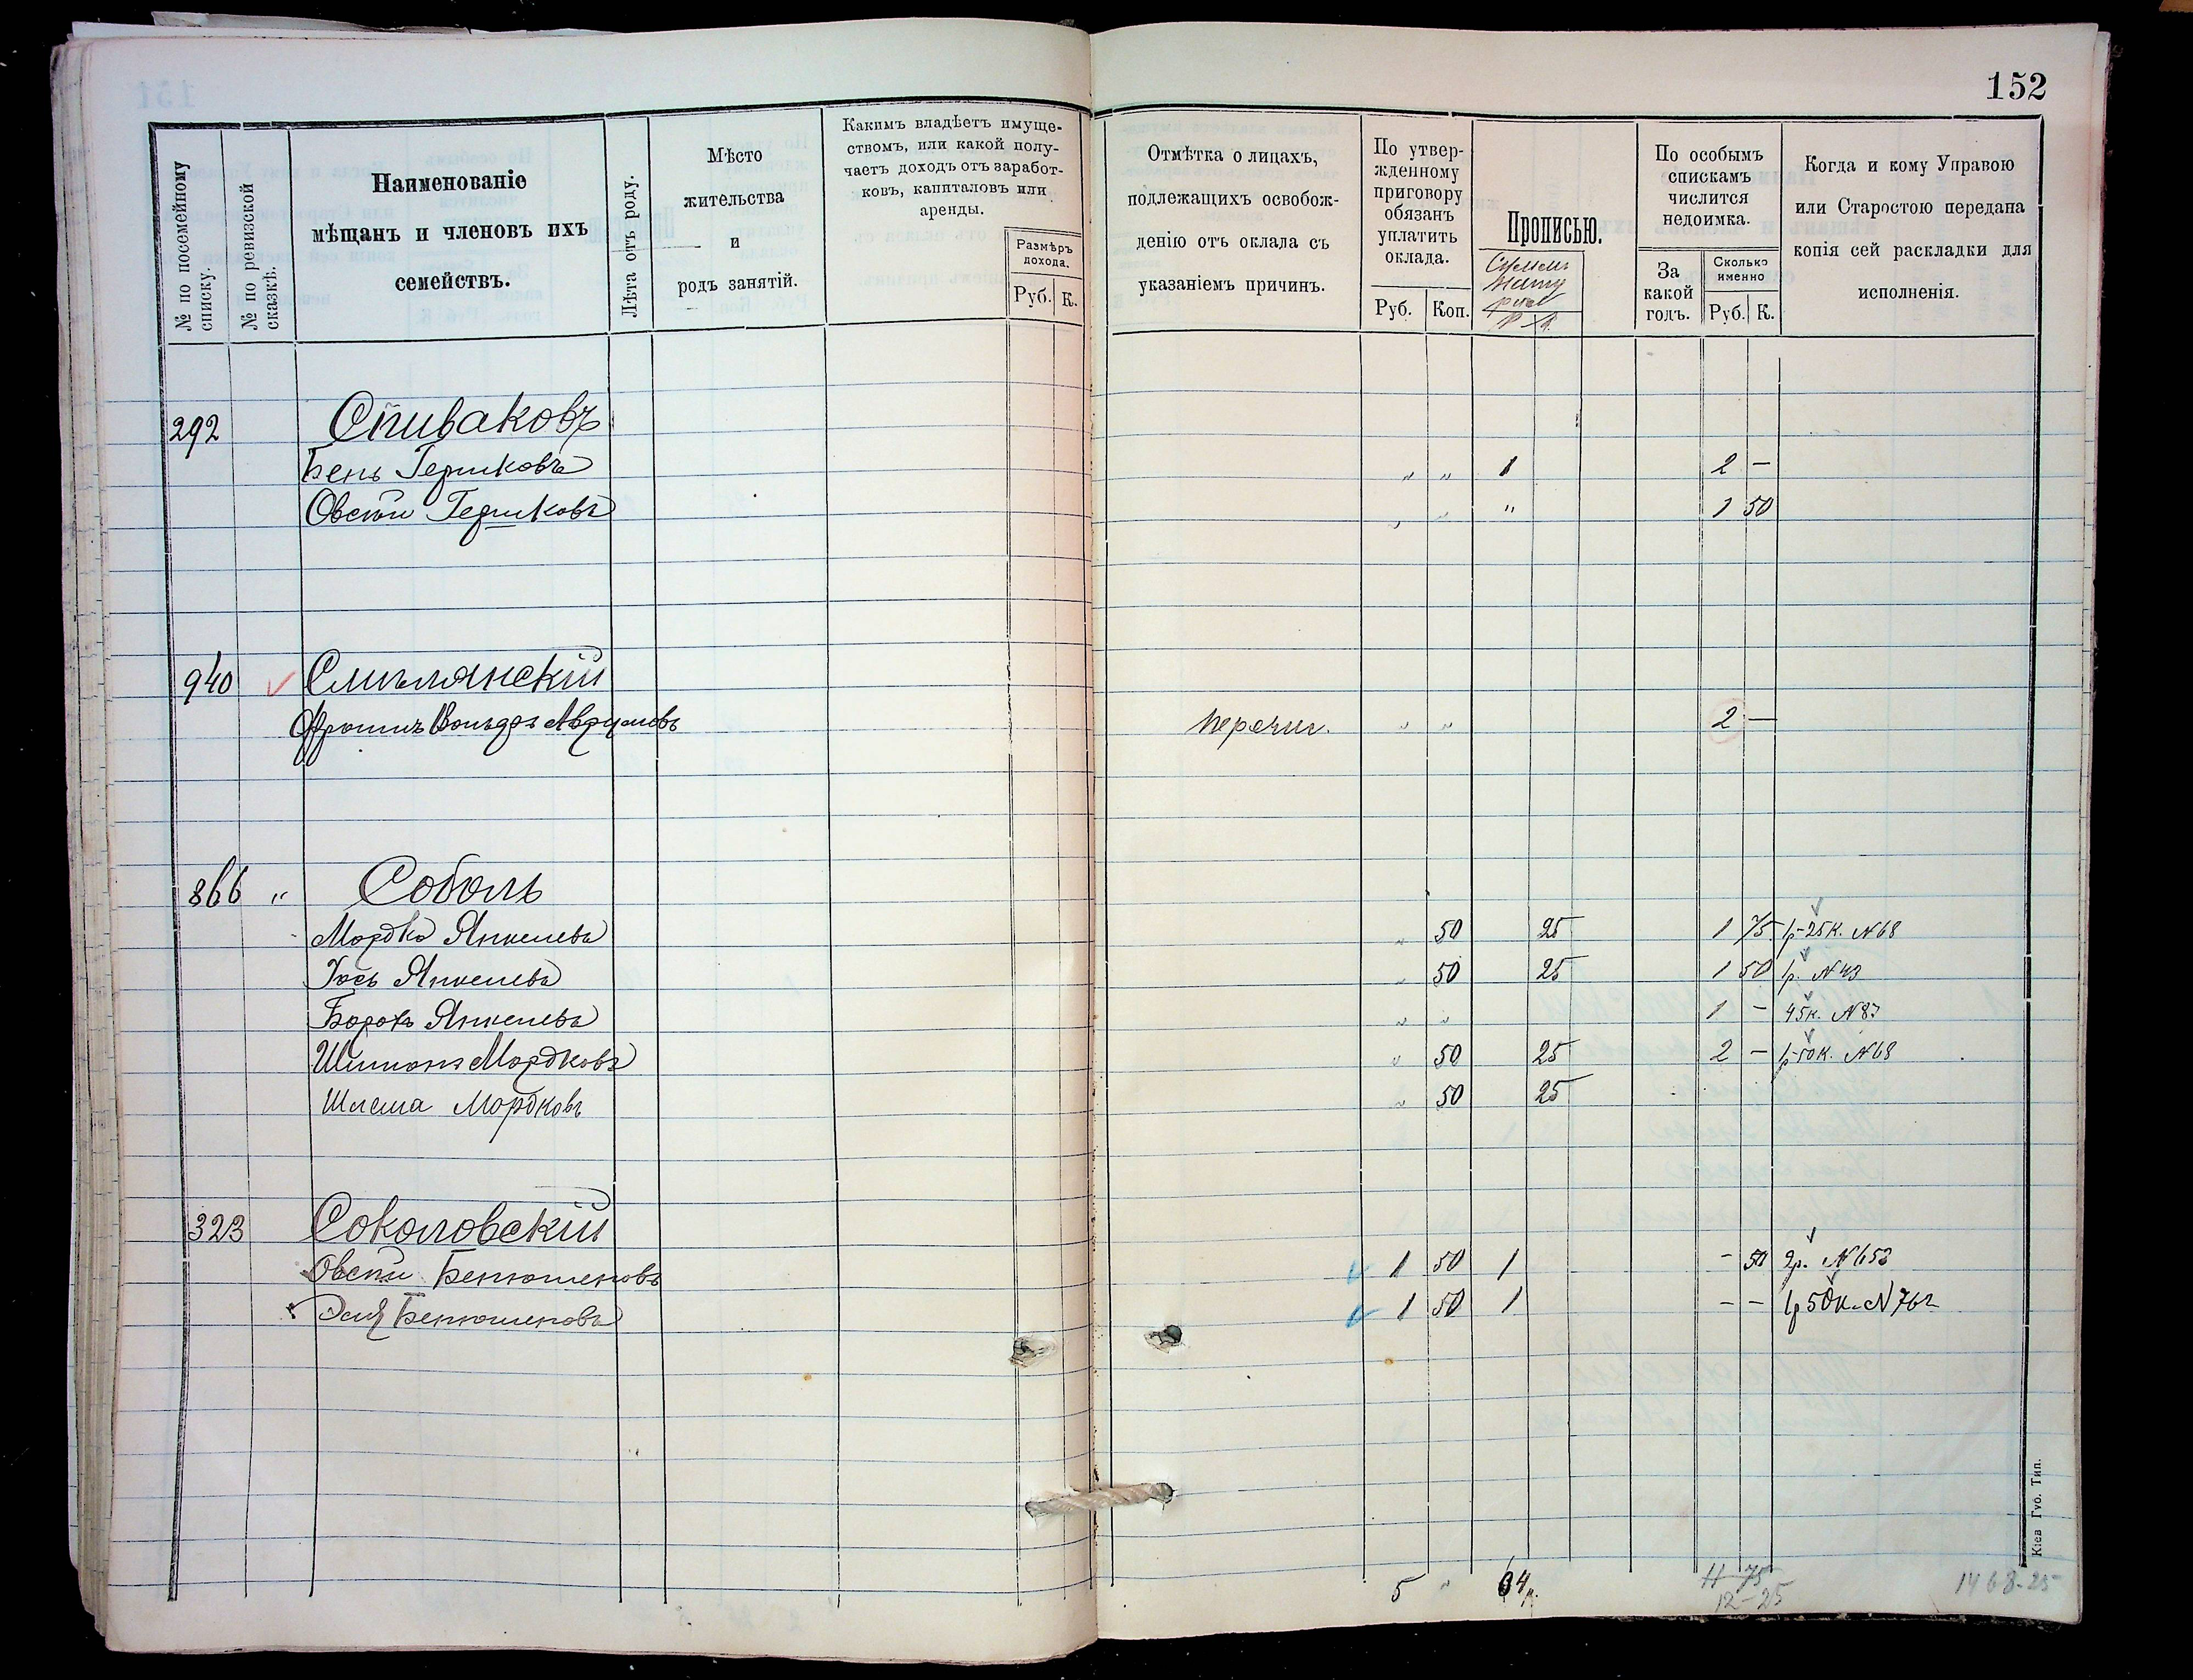 152
№ по посемейному списку.
№ по ревизской сказкѣ.
Наименованіе
мѣщанъ и членовъ ихъ
семействъ.
Лѣта отъ роду.
Мѣсто
жительства
и
родъ занятій.
Какимъ владѣетъ имуще-
ствомъ, или какой полу-
чаетъ доходъ отъ заработ-
ковъ, капиталовъ или
аренды.
Размѣръ
дохода.
Руб. К.
Отмѣтка о лицахъ,
подлежащихъ освобож-
денію отъ оклада съ
указаніемъ причинъ.
По утвер-
жденному
приговору
обязанъ
уплатить
оклада.
Руб. Коп.
Прописью.
По особымъ
спискамъ
числится
недоимка.
За
какой
годъ.
Сколько
именно
Руб. К.
Когда и кому Управою
или Старостою передана
копія сей раскладки для
исполненія.
292 Спиваковъ
Бень Гершковъ " " 1 2 —
Овсѣй Гершковъ " " " 1 50
940 Смилянскій
Авр­умовъ перечис. " " 2 —
866 " Соболь
Мордко Янкелевъ " 50 25 1 75 1р-25к. №68
Іось Янкелевъ " 50 25 1 50 1р. №43
Борохъ Янкелевъ " " 1 - 45к. №87
Шимонъ Мордковъ " 50 25 2 — 1р-50к. №68
Шлема Мордковъ " 50 25
323 Соколовскій
Овсѣй Бенюменовъ 1 50 1 - 50 2р. №653
Эля Бенюменовъ 1 50 1 - - 1р 50к. №762
5 " 4р.
11 75
12-25
1468-25
Кіев Губ. Тип.